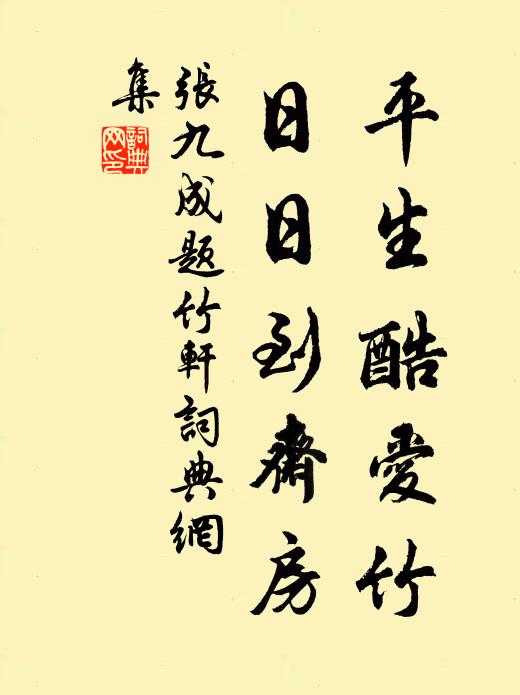 平生酷愛竹
日日到齋房
張九成題竹軒詞典網
集
詞典
网印